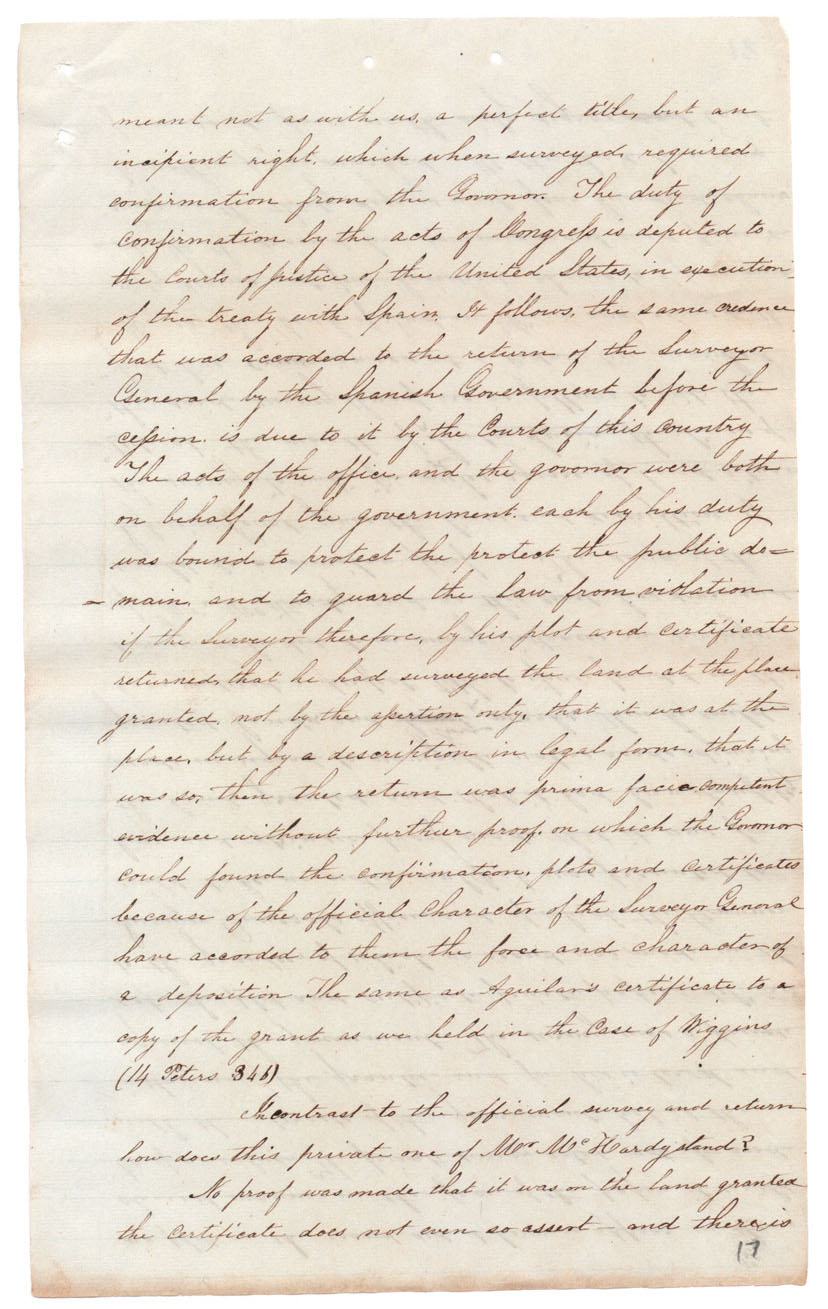 meant not as with us, a perfect title, but an
incipient right, which when surveyed, required
confirmation from the Govornor. The duty of
confirmation by the acts of Congress is deputed to
the Courts of Justice of the United States, in execution
of the treaty with Spain. It follows, the same credence
that was accorded to the return of the Surveyor
General by the Spanish Government before the
cession. is due to it by the Courts of this country
The acts of the office, and the govornor were both
on behalf of the government. each by his duty
was bound to protect the protect the public do=
= main, and to guard the law from violation
if the Surveyor therefore, by his plot and certificate
returned, that he had surveyed the land at the place
granted, not by the assertion only, that it was at the
place, but by a description in legal form, that it
was so, then the return was prima facie competent
evidence without further proof, on which the Govornor
could found the confirmation, plots and certificates
because of the official character of the Surveyor General
have accorded to them the force and character of
a deposition The same as Aguilar's certificate to a
copy of the grant as we held in the Case of Wiggins
(14 Peters 346)
In contrast to the official survey and return
how does this private one of Mr McHardy stand?
No proof was made that it was on the land granted
the certificate does not even so assert – and there is
17